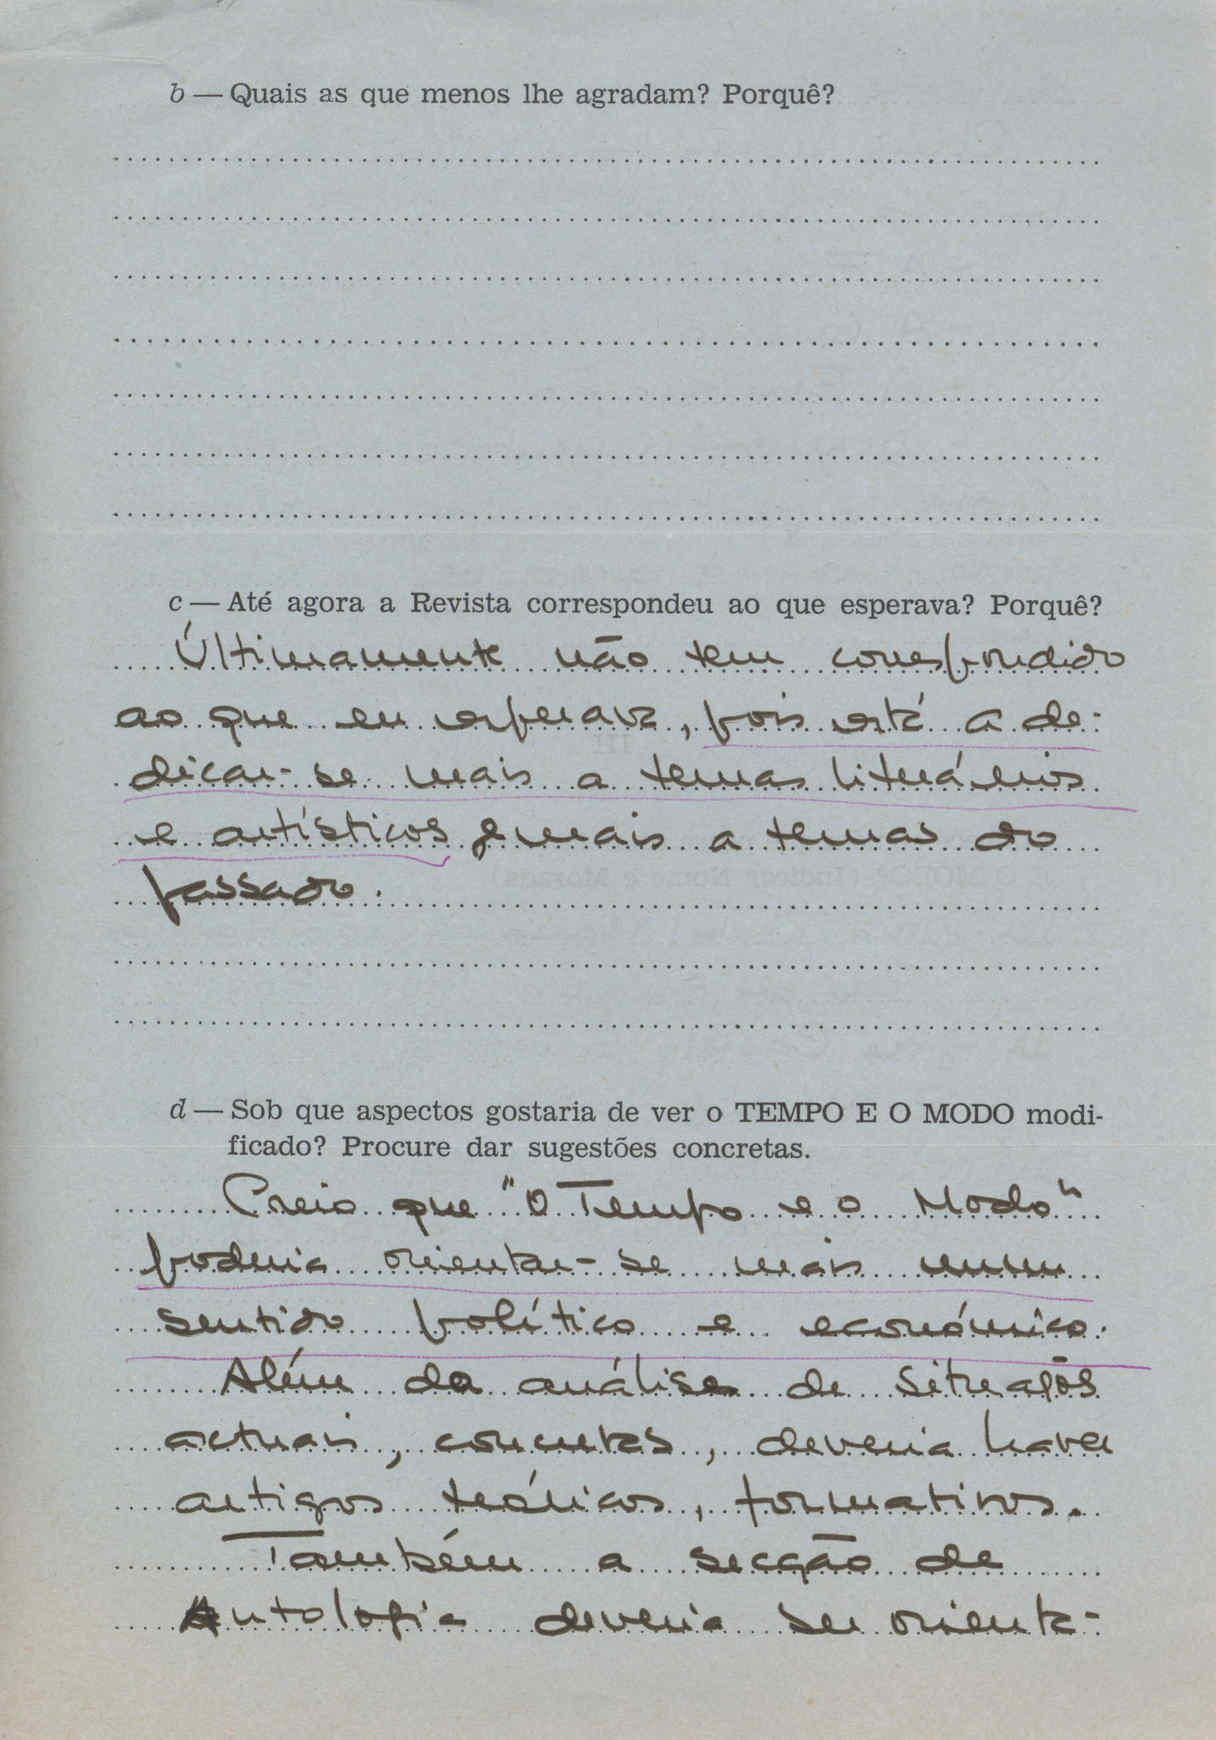 b — Quais as que menos lhe agradam? Porquê?
c — Até agora a Revista correspondeu ao que esperava? Porquê?
Últimamente não tem correspondido
ao que eu esperava, pois está a de-
dicar-se mais a temas literários
e artísticos e mais a temas do
passado.
d — Sob que aspectos gostaria de ver o TEMPO E O MODO modi-
ficado? Procure dar sugestões concretas.
Creio que "O Tempo e o Modo"
poderia orientar-se mais num
sentido político e económico.
Além da análise de situações
actuais, concretas, deveria haver
artigos teóricos, formativos.
Também a secção de
Antologia deveria ser orienta-